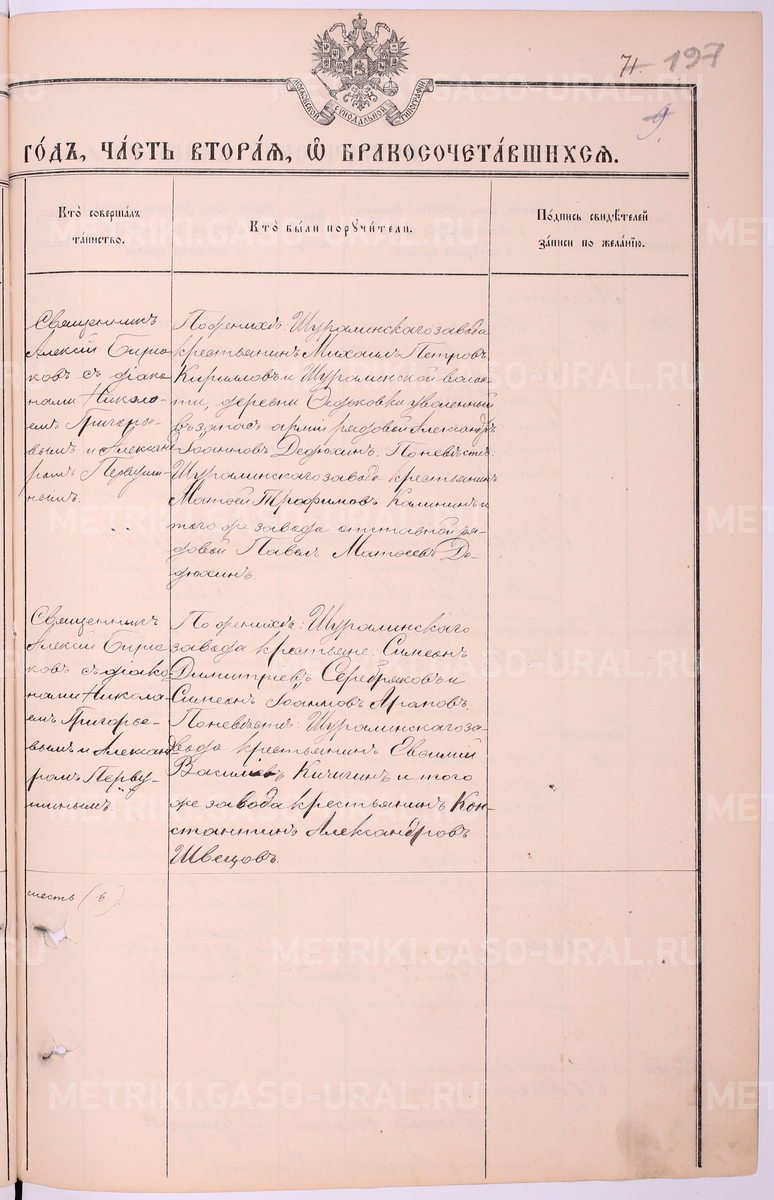 МОСКОВСКОЙ СѴНОДАЛЬНОЙ ТИПОГРАФІИ
71. 197
9
ГО́ДЪ, ЧА́СТЬ ВТОРА́Я, Ѡ҆ БРАКОСОЧЕТА́ВШИХСЯ.
Кто̀ совершалъ
та́инство.
Кто̀ бы́ли порꙋчи́тели.
По́дпись свидѣ́телей
за́писи по жела́нїю.
Священникъ
Алексій Бирю-
ковъ съ діако-
нами Никола-
емъ Григорье-
вымъ и Александ-
ромъ Первуши-
нымъ.
По женихѣ: Шуралинскаго завода
крестьянинъ Михаилъ Петровъ
Кирилловъ и Шуралинской волос-
ти, деревни Ѳедьковки уволенный
въ запасъ арміи рядовой Александръ
Іоанновъ Дедюхинъ. По невѣстѣ:
Шуралинскаго завода крестьянинъ
Матѳей Трофимовъ Калининъ и
того же завода отставной ря-
довой Павелъ Матѳеевъ Де-
дюхинъ.
Священникъ
Алексій Бирю-
ковъ съ діако-
нами Никола-
емъ Григорье-
вымъ и Алексан-
ромъ Перву-
шинымъ.
По женихѣ: Шуралинскаго
завода крестьяне: Симеонъ
Димитріевъ Серебряковъ и
Симеонъ Іоанновъ Араповъ.
По невѣстѣ: Шуралинскаго за-
вода крестьянинъ Евѳимій
Василіевъ Кичигинъ и того
же завода крестьянинъ Кон-
стантинъ Александровъ
Швецовъ.
шесть (6).
METRIKI.GASO-URAL.RU